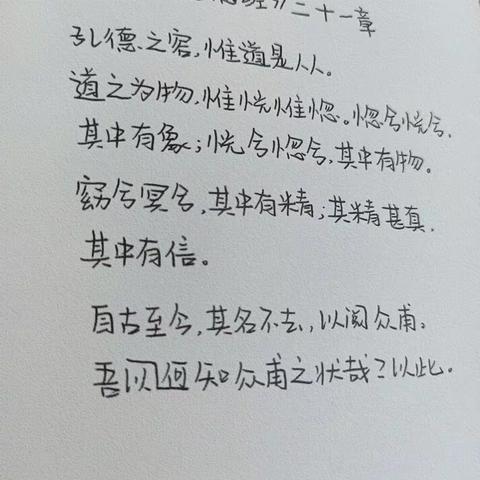 》二十一章
孔德之容,惟道是从。
道之为物,惟恍惟惚。惚兮恍兮,
其中有象;恍兮惚兮,其中有物。
窈兮冥兮,其中有精;其精甚真,
其中有信。
自古至今,其名不去,以阅众甫。
吾以何知众甫之状哉?以此。